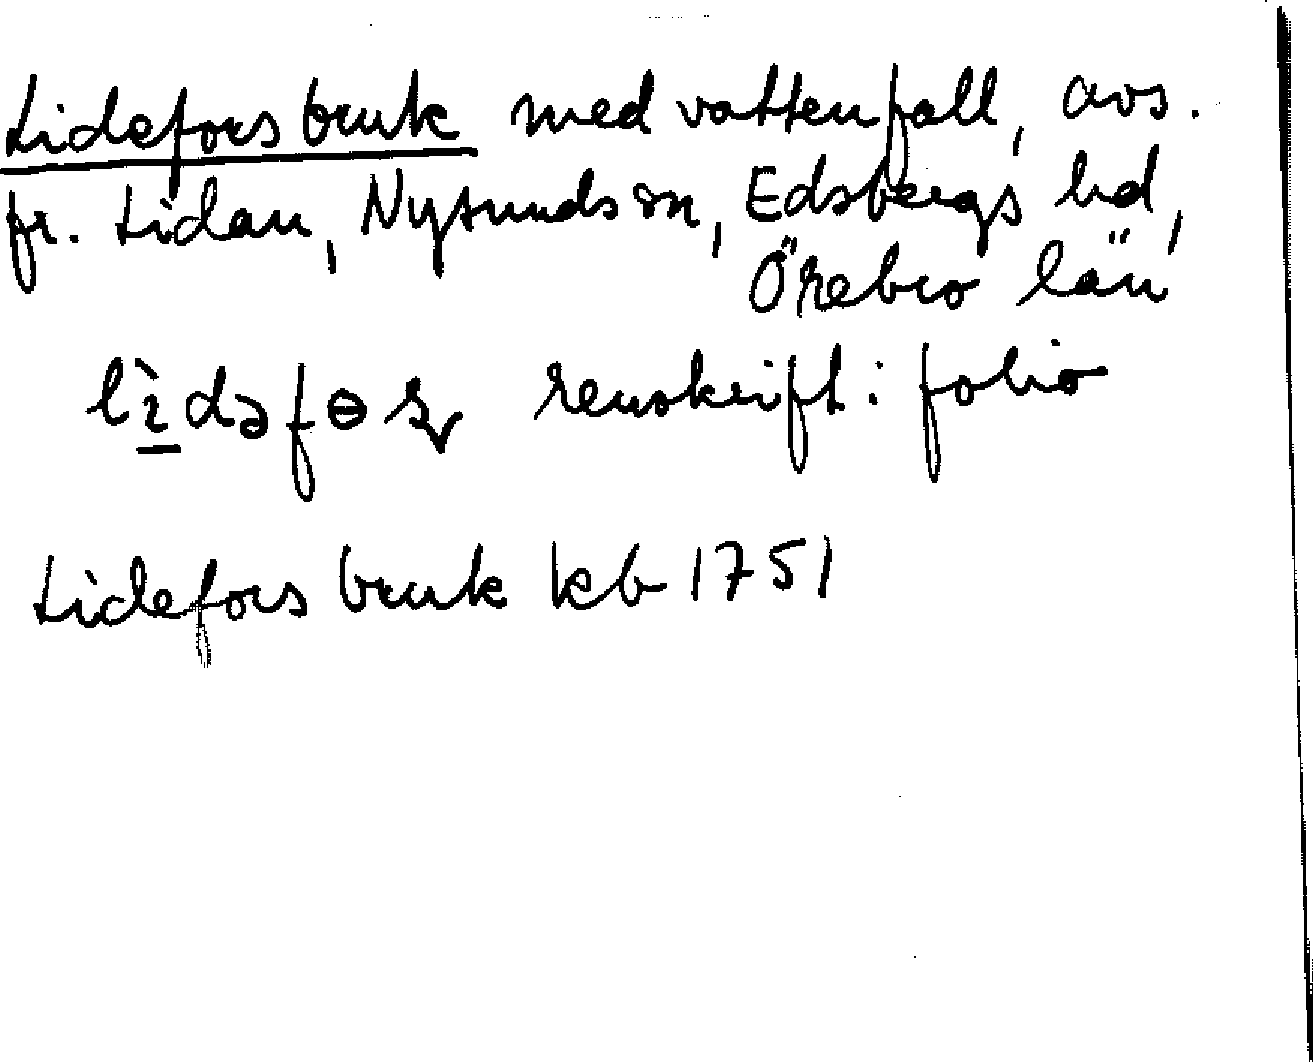 Lidefors bruk med vattenfall, avs.
fr. Lidan, Nysunds sn, Edsbergs hd,
Örebro län
lìdəfɵʂ renskrift: folio
Lidefors bruk kb 1751